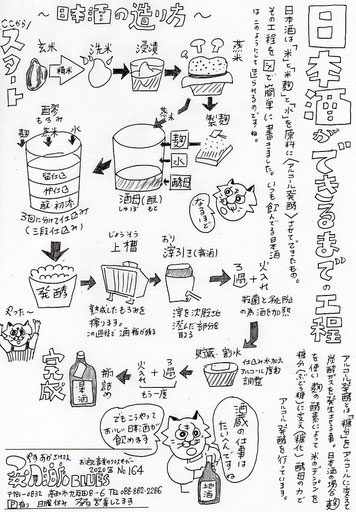 日本酒ができるまでの工程
日本酒は「米」と「米麹」と「水」を原料に〈アルコール発酵〉させてできたもの。
その工程を図で簡単に書きました。いつも飲んでる日本酒
はこのようにして造られるのですね。
〜日本酒の造り方〜
ここから!
スタート
玄米
精米
洗米
浸漬
蒸米
製麹
蒸米
麹
水
酵母
酒母(酛)
しゅぼ もと
醪
もろみ
麹
蒸米
水
留仕込
仲仕込
初添
3回に分けて仕込み
(三段仕込み)
なるほど
発酵
じょうそう
上槽
熟成したもろみを
搾ります。
この過程で酒粕が残る
おり
滓引き
滓を沈殿させ
澄んだ部分を
取る
ろ過+火入れ
殺菌と劣化防止
の為酒を加熱
貯蔵・割水
仕込み水加え
アルコール度数
調整
ろ過+火入れ
もう一度
瓶詰め
完成
やったー
でもこうやって
おいしい日本酒が
飲めます
酒蔵の仕事は
たいへんですね
地酒
アルコール発酵とは「糖分」をアルコールに変えて
炭酸ガスを発生させる事。日本酒の場合麹
を使い麹の酵素によって米のデンプンを
糖分(ブドウ糖)に変え〈糖化〉酵母の力で
アルコール発酵を行っています。
お酒と食のワクワクペーパー
2020年 No164
〒781-0832 高知市九反田8-6 TEL 088-882-2286